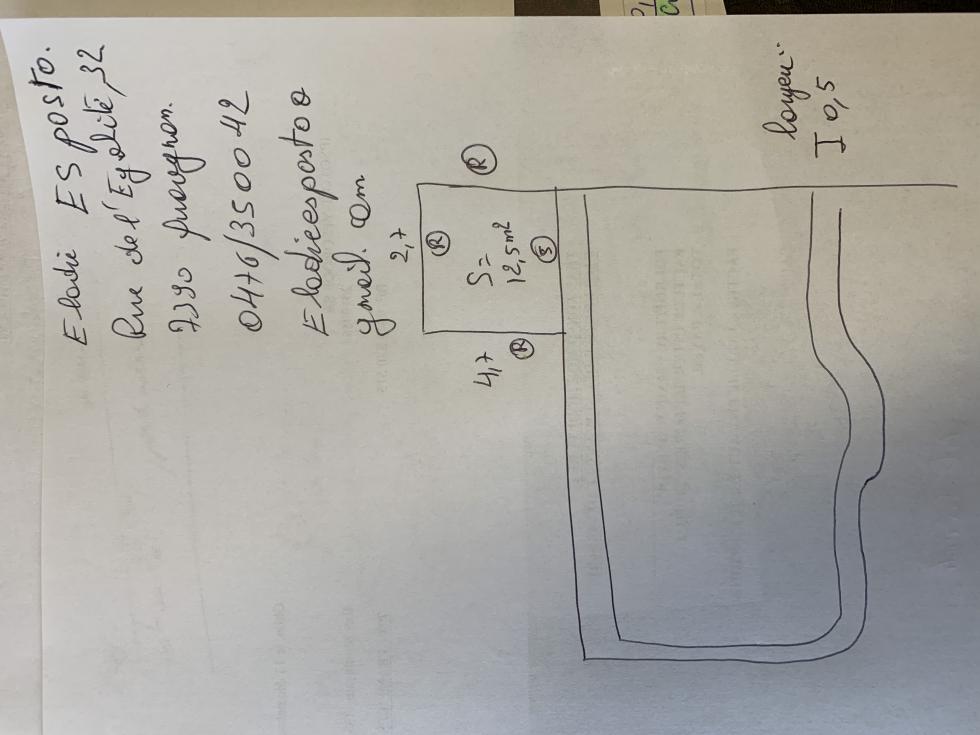 Elodie ESposto.
Rue de l'Egalité, 32
7390 quaregnon.
0476/350042
Elodieesposto@
gmail.com
2,7
R
R
S=
12,5m²
S
4,7
R
largeur:
I 0,5